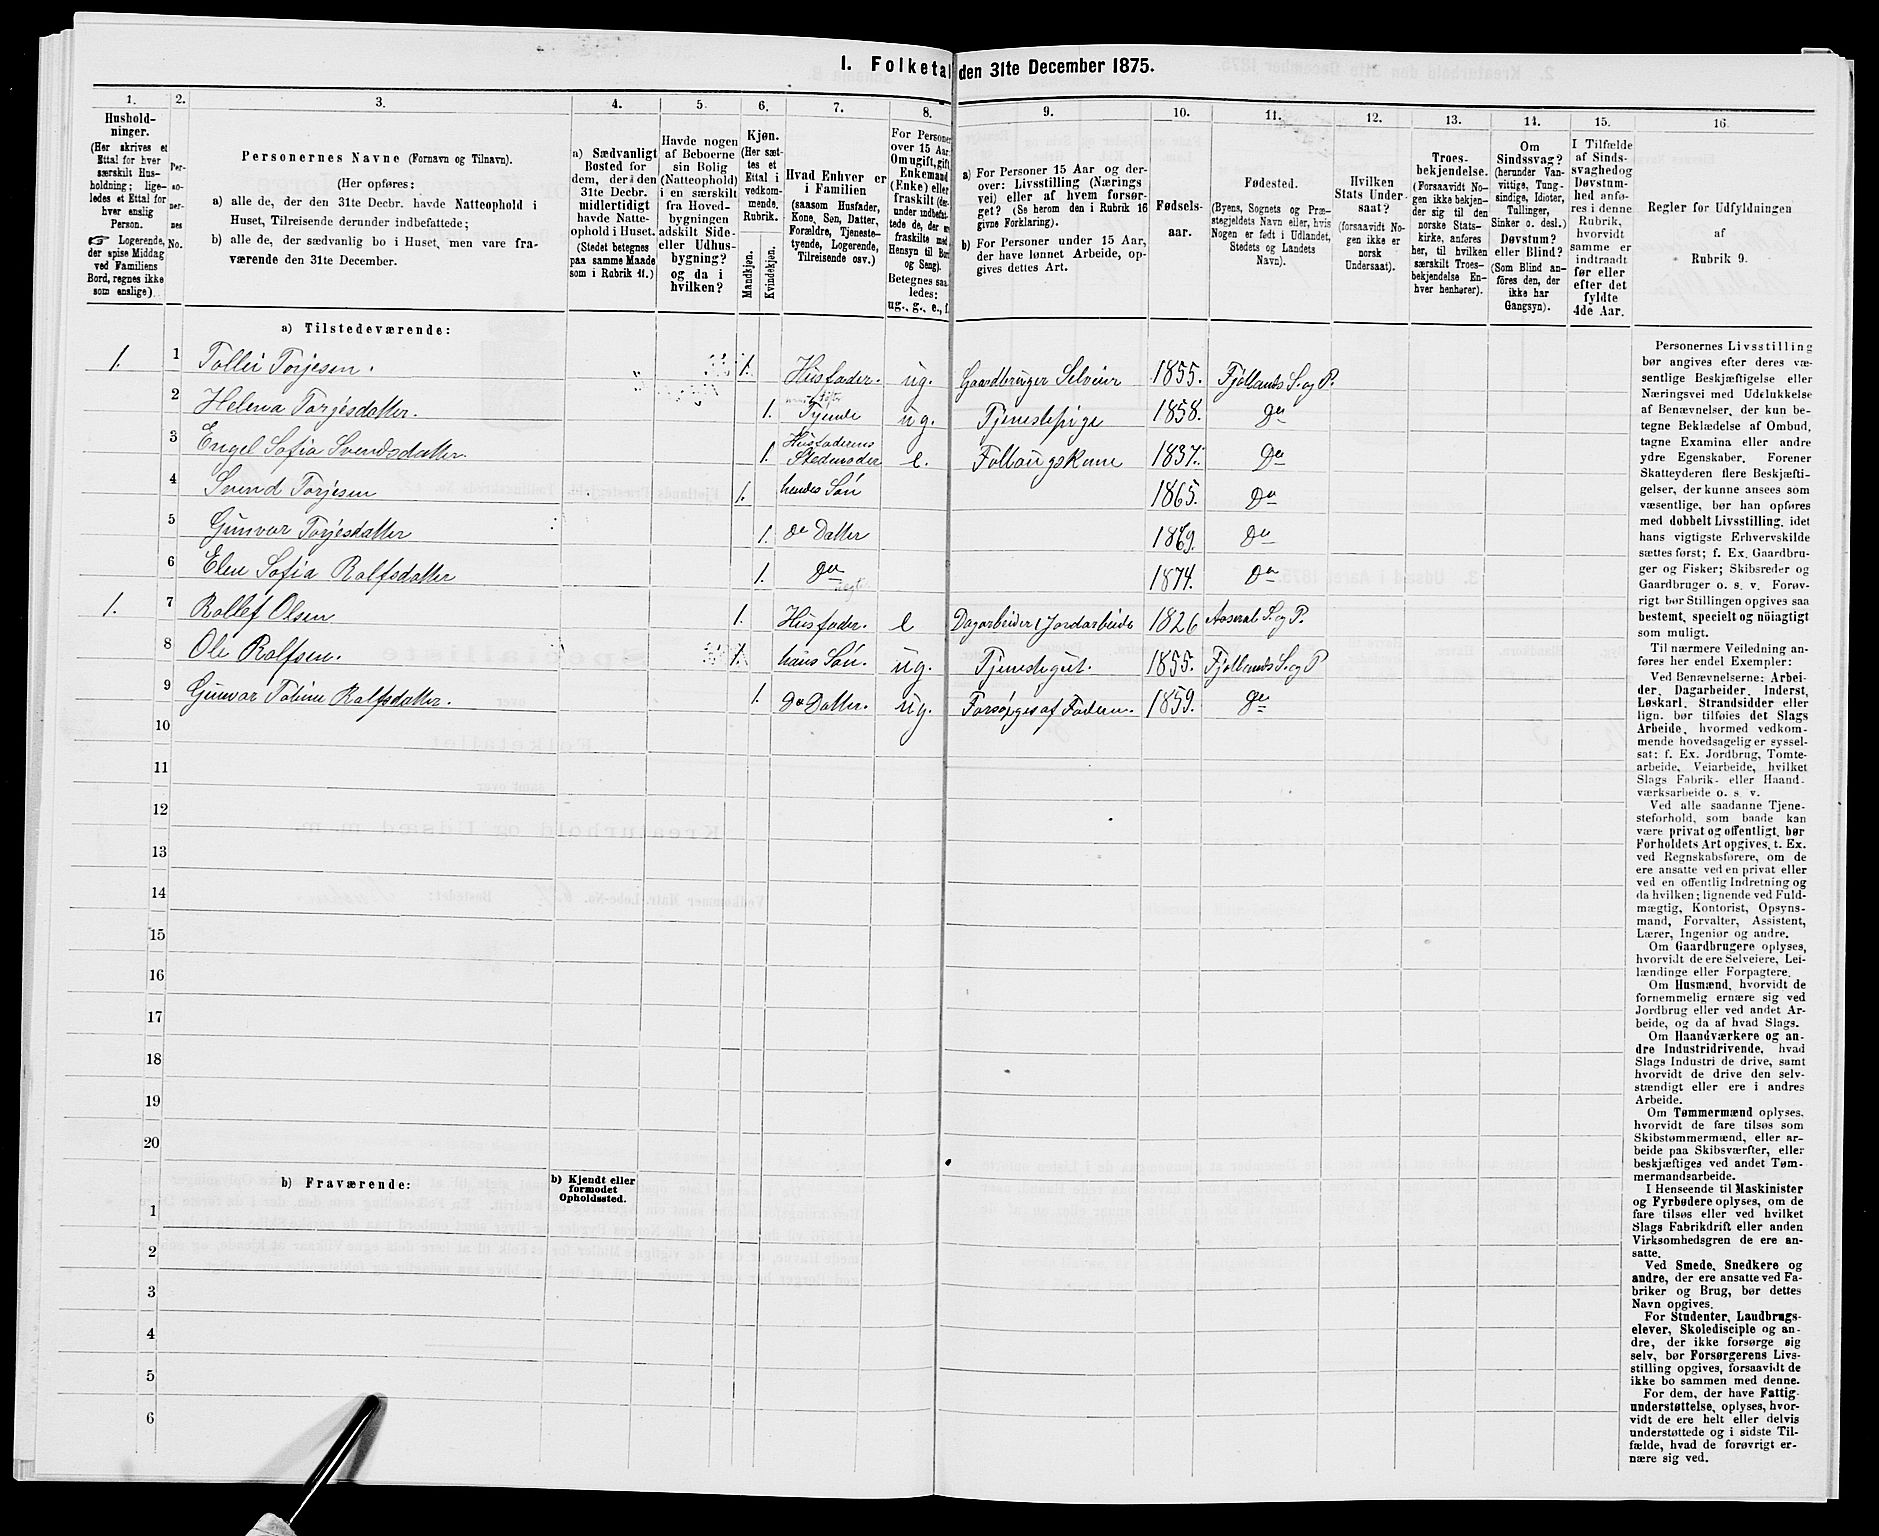 I. Folketal den 31te December 1875.
1. 2. 3. 4. 5. 6. 7. 8. 9. 10. 11. 12. 13. 14. 15. 16.
Hushold-
ninger.
(Her skrives et
Ettal for hver
særskilt Hus-
holdning; lige-
ledes et Ettal for
hver enslig
Person.
☞ Logerende,
der spise Middag
ved Familiens
Bord, regnes ikke
som enslige).
Per-
so-
ner-
nes
No.
Personernes Navne (Fornavn og Tilnavn).
(Her opføres:
a) alle de, der den 31te Decbr. havde Natteophold i
Huset, Tilreisende derunder indbefattede;
b) alle de, der sædvanlig bo i Huset, men vare fra-
værende den 31te December.
a) Sædvanligt
Bosted for
dem, der i den
31te Decbr.
midlertidigt
havde Natte-
ophold i Huset.
(Stedet betegnes
paa samme Maade
som i Rubrik 11.)
Havde nogen
af Beboerne
sin Bolig
(Natteophold)
i en særskilt
fra Hoved-
bygningen
adskilt Side-
eller Udhus-
bygning?
og da i
hvilken?
Kjøn.
(Her sæt-
tes et
Ettal i
vedkom-
mende
Rubrik.
Mandkjøn.
Kvindekjøn.
Hvad Enhver er
i Familien
(saasom Husfader,
Kone, Søn, Datter,
Forældre, Tjeneste-
tyende, Logerende,
Tilreisende osv.)
For Personer
over 15 Aar:
Om ugift, gift,
Enkemand
(Enke) eller
fraskilt (der-
under indbefat-
tede de, der ere
fraskilte med
Hensyn til Bord
og Seng).
Betegnes saa-
ledes:
ug., g., e., f.
a) For Personer 15 Aar og der-
over: Livsstilling (Nærings-
vei) eller af hvem forsør-
get? (Se herom den i Rubrik 16
givne Forklaring).
b) For Personer under 15 Aar,
der have lønnet Arbeide, op-
gives dettes Art.
Fødsels-
aar.
Fødested.
(Byens, Sognets og Præ-
stegjeldets Navn eller, hvis
Nogen er født i Udlandet,
Stedets og Landets
Navn).
Hvilken
Stats Under-
saat?
(forsaavidt No-
gen ikke er
norsk
Undersaat).
Troes-
bekjendelse.
(Forsaavidt No-
gen ikke bekjen-
der sig til den
norske Stats-
kirke, anføres
her, til hvilken
særskilt Troes-
bekjendelse En-
hver henhører).
Om
Sindssvag?
(herunder Van-
vittige, Tung-
sindige, Idioter,
Tullinger,
Sinker o. desl.)
Døvstum?
eller Blind?
(Som Blind an-
føres den, der
ikke har
Gangsyn).
I Tilfælde
af Sinds-
svaghed og
Døvstum-
hed anfø-
res i denne
Rubrik,
hvorvidt
samme er
indtraadt
før eller
efter det
fyldte
4de Aar.
Regler for Udfyldningen
af
Rubrik 9.
a) Tilstedeværende:
1. 1 Tollei Torjesen. 1. Husfader. ug. Gaardbruger Selveier 1855. Fjotlands S. og P.
2 Helena Torjesdatter. 1. Tjende ug. Tjenestepige 1858. Do
3 Engel Sofia Svendsdatter. 1. Husfaderens Stedmoder e. Follaugskone 1837. Do
4 Svend Torjesen 1. hendes Søn 1865. Do
5 Gunvor Torjesdatter 1. do Datter 1869. Do
6 Elen Sofia Rolfsdatter 1. Do 1874. Do
1. 7 Rollef Olsen 1. Husfader. e Dagarbeider, Jordarbeide 1826 Aaseral S. og P.
8 Ole Rolfsen. 1. hans Søn ug. Tjenestegut. 1855. Fjotlands S. og P
9 Gunvor Tobine Rolfsdatter. 1. Do Datter. ug. Forsørges af Faderen. 1859. Do
10
11
12
13
14
15
16
17
18
19
20
b) Fraværende:
b) Kjendt eller
formodet
Opholdssted.
1
2
3
4
5
6
Personernes Livsstilling
bør angives efter deres væ-
sentlige Beskjæftigelse eller
Næringsvei med Udelukkelse
af Benævnelser, der kun be-
tegne Beklædelse af Ombud,
tagne Examina eller andre
ydre Egenskaber. Forener
Skatteyderen flere Beskjæfti-
gelser, der kunne ansees som
væsentlige, bør han opføres
med dobbelt Livsstilling, idet
hans vigtigste Erhvervskilde
sættes først; f. Ex. Gaardbru-
ger og Fisker; Skibsreder og
Gaardbruger o. s. v. Forøv-
rigt bør Stillingen opgives saa
bestemt, specielt og nöiagtigt
som muligt.
Til nærmere Veiledning an-
føres her endel Exempler:
Ved Benævnelserne: Arbei-
der, Dagarbeider, Inderst,
Løskarl, Strandsidder eller
lign. bør tilføies det Slags
Arbeide, hvormed vedkom-
mende hovedsagelig er syssel-
sat: f. Ex. Jordbrug, Tomte-
arbeide, Veiarbeide, hvilket
Slags Fabrik- eller Haand-
værksarbeide o. s. v.
Ved alle saadanne Tjene-
steforhold, som baade kan
være privat og offentligt, bør
Forholdets Art opgives, t. Ex.
ved Regnskabsførere, om de
ere ansatte ved en privat eller
ved en offentlig Indretning og
da hvilken; lignende ved Fuld-
mægtig, Kontorist, Opsyns-
mand, Forvalter, Assistent,
Lærer, Ingeniør og andre.
Om Gaardbrugere oplyses,
hvorvidt de ere Selveiere, Lei-
lændinge eller Forpagtere.
Om Husmænd, hvorvidt de
fornemmelig ernære sig ved
Jordbrug eller ved andet Ar-
beide, og da af hvad Slags.
Om Haandværkere og an-
dre Industridrivende, hvad
Slags Industri de drive, samt
hvorvidt de drive den selv-
stændigt eller ere i andres
Arbeide.
Om Tømmermænd oplyses,
hvorvidt de fare tilsøs som
Skibstømmermænd, eller ar-
beide paa Skibsværfter, eller
beskjæftiges ved andet Tøm-
mermandsarbeide.
I Henseende til Maskinister
og Fyrbødere oplyses, om de
fare tilsøs eller ved hvilket
Slags Fabrikdrift eller anden
Virksomhedsgren de ere an-
satte.
Ved Smede, Snedkere og
andre, der ere ansatte ved Fa-
briker og Brug, bør dettes
Navn opgives.
For Studenter, Landbrugs-
elever, Skoledisciple og an-
dre, der ikke forsørge sig
selv, bør Forsørgerens Livs-
stilling opgives, forsaavidt de
ikke bo sammen med denne.
For dem, der have Fattig-
understøttelse, oplyses, hvor-
vidt de ere helt eller delvis
understøttede og i sidste Til-
fælde, hvad de forøvrigt er-
nære sig ved.